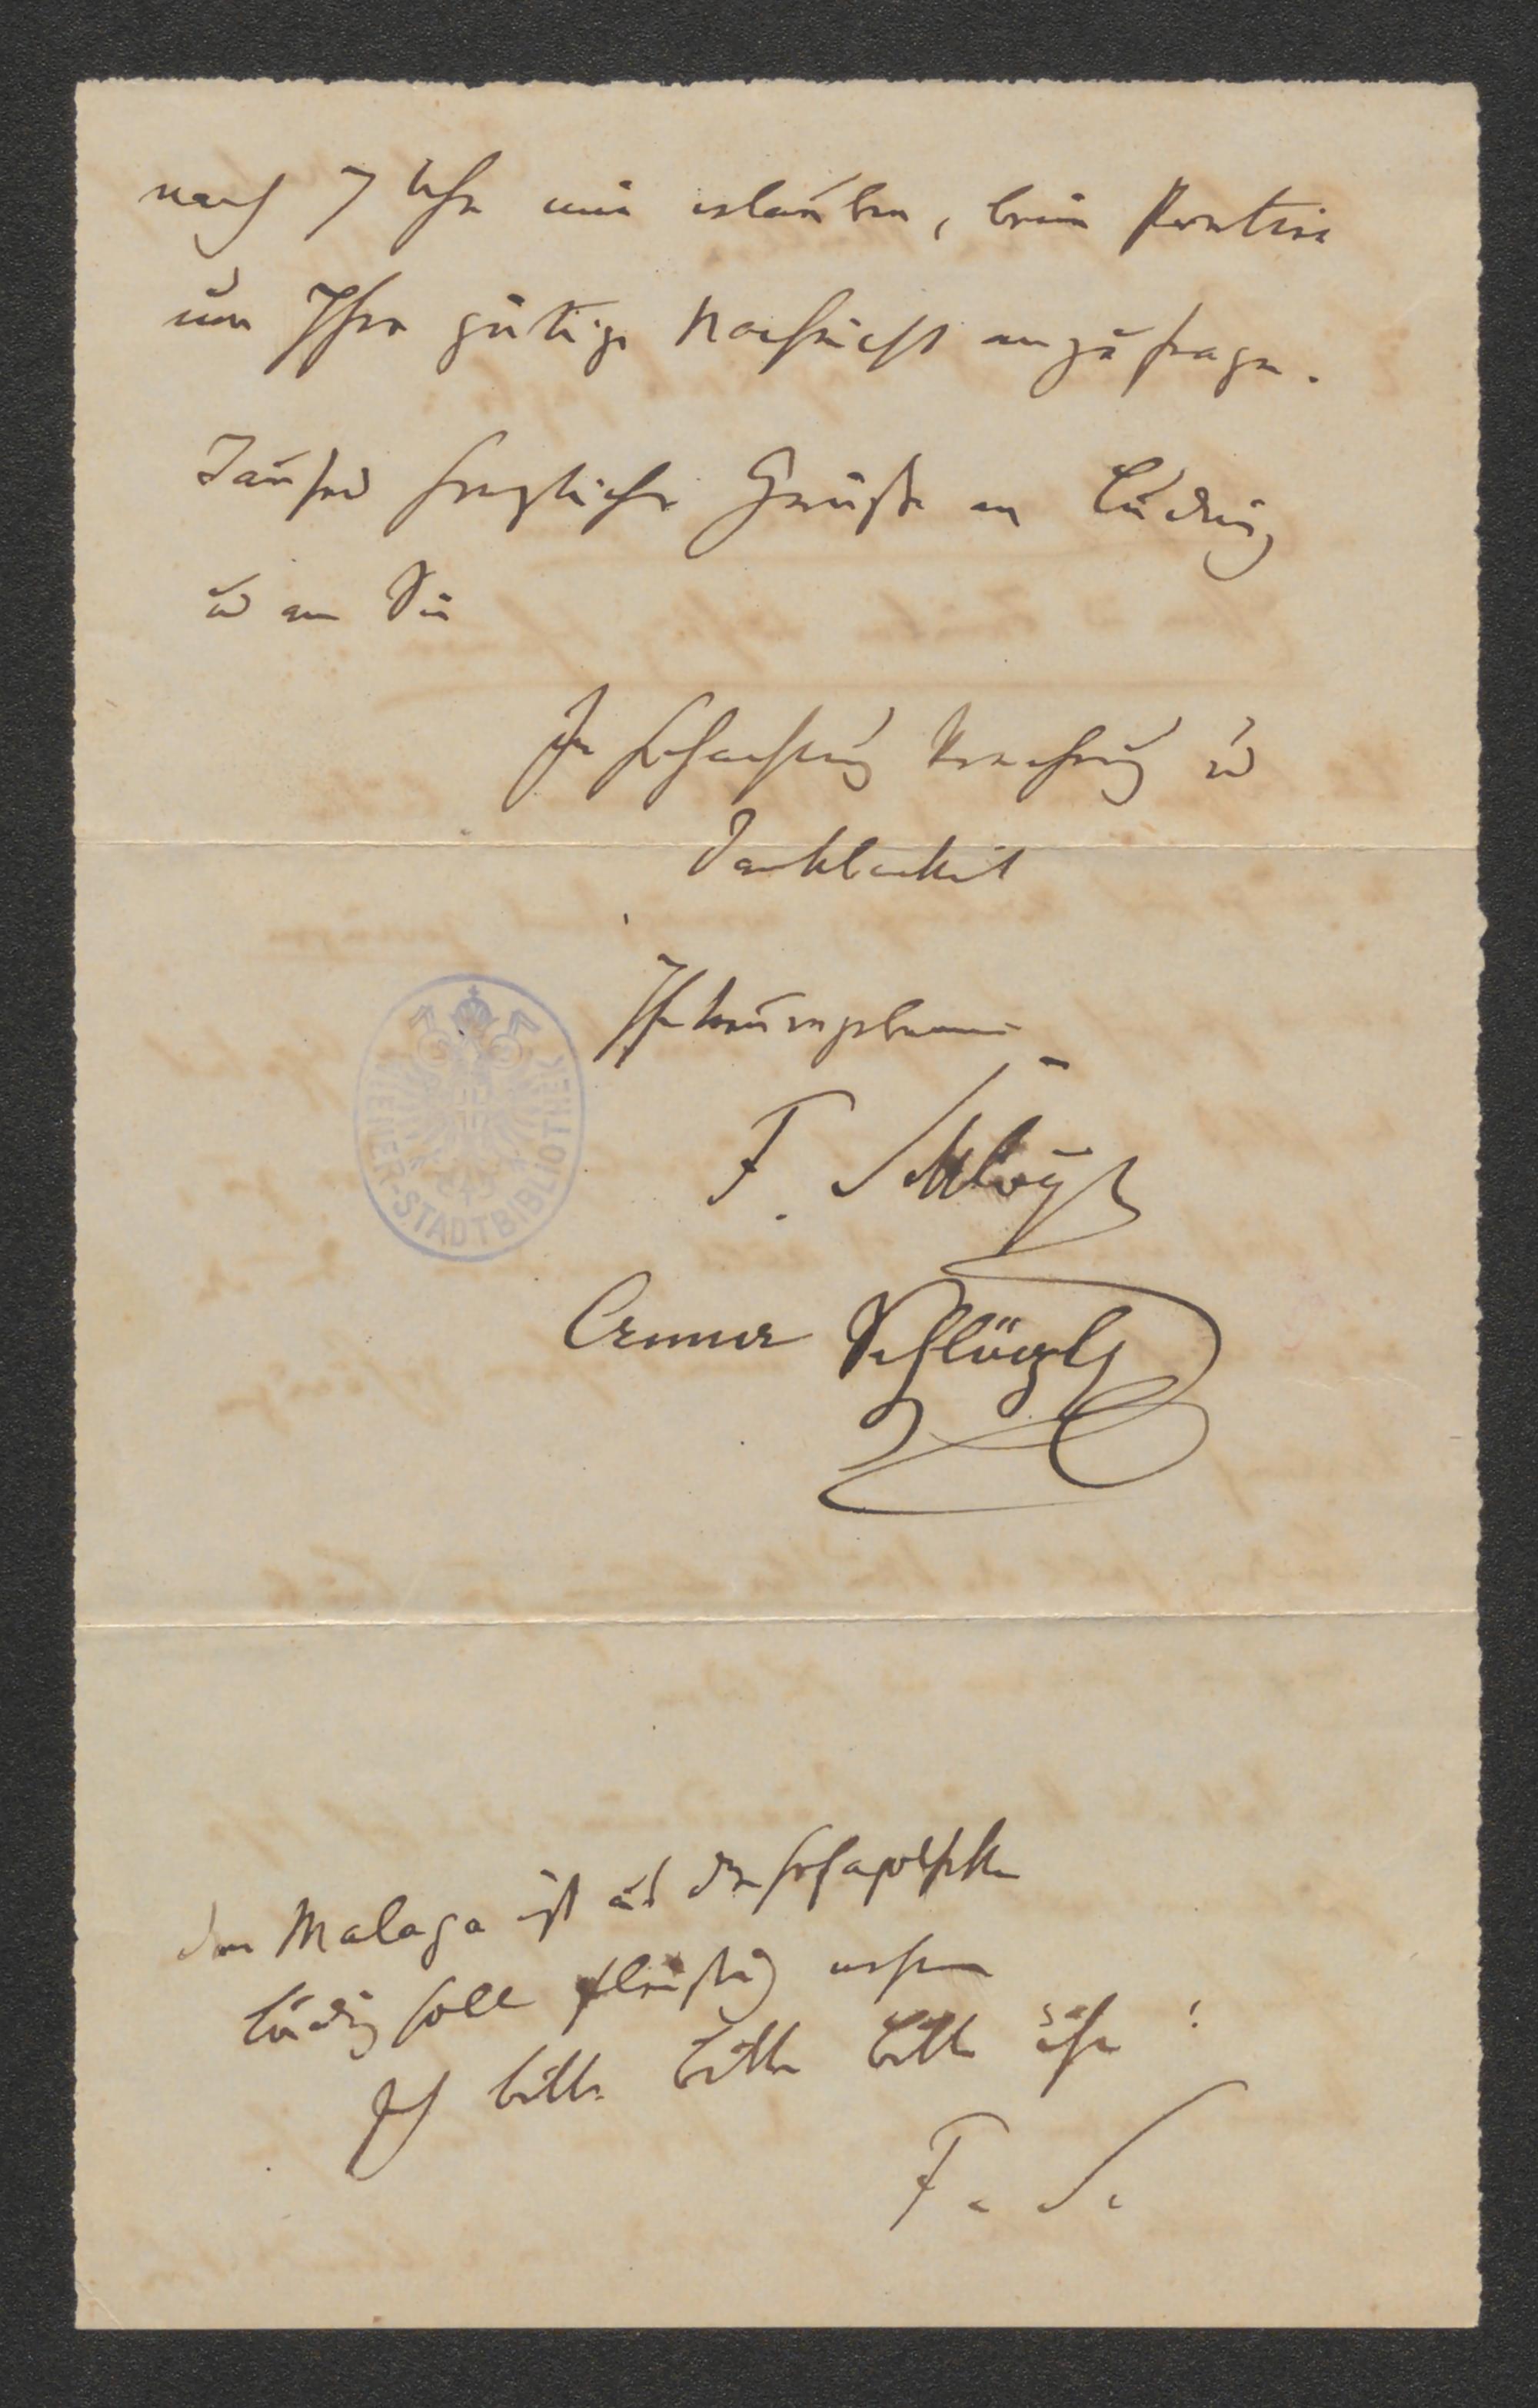 nach 7 Uhr mir erlauben, beim Portier
um Ihre gütige Nachricht anzufragen.
Tausend herzliche Grüße an Ludwig
u an Sie
In hochachtung Verehrung u
Dankbarkeit
Ihr treuergebener
F. Schlögl
Schlögl
WIENER-STADTBIBLIOTHEK
der Malaga ist aus der Hofapotheke
Ludwig soll fleißig
Ich bitte bitte bitte sehr!
F. S.